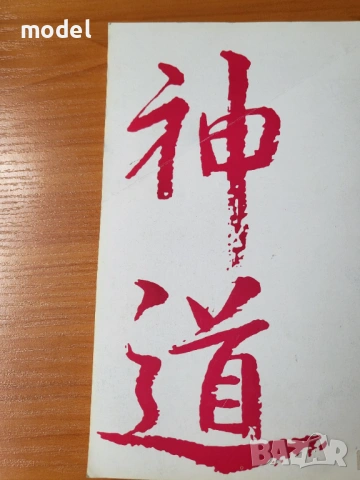 model
神
道
BAZAR